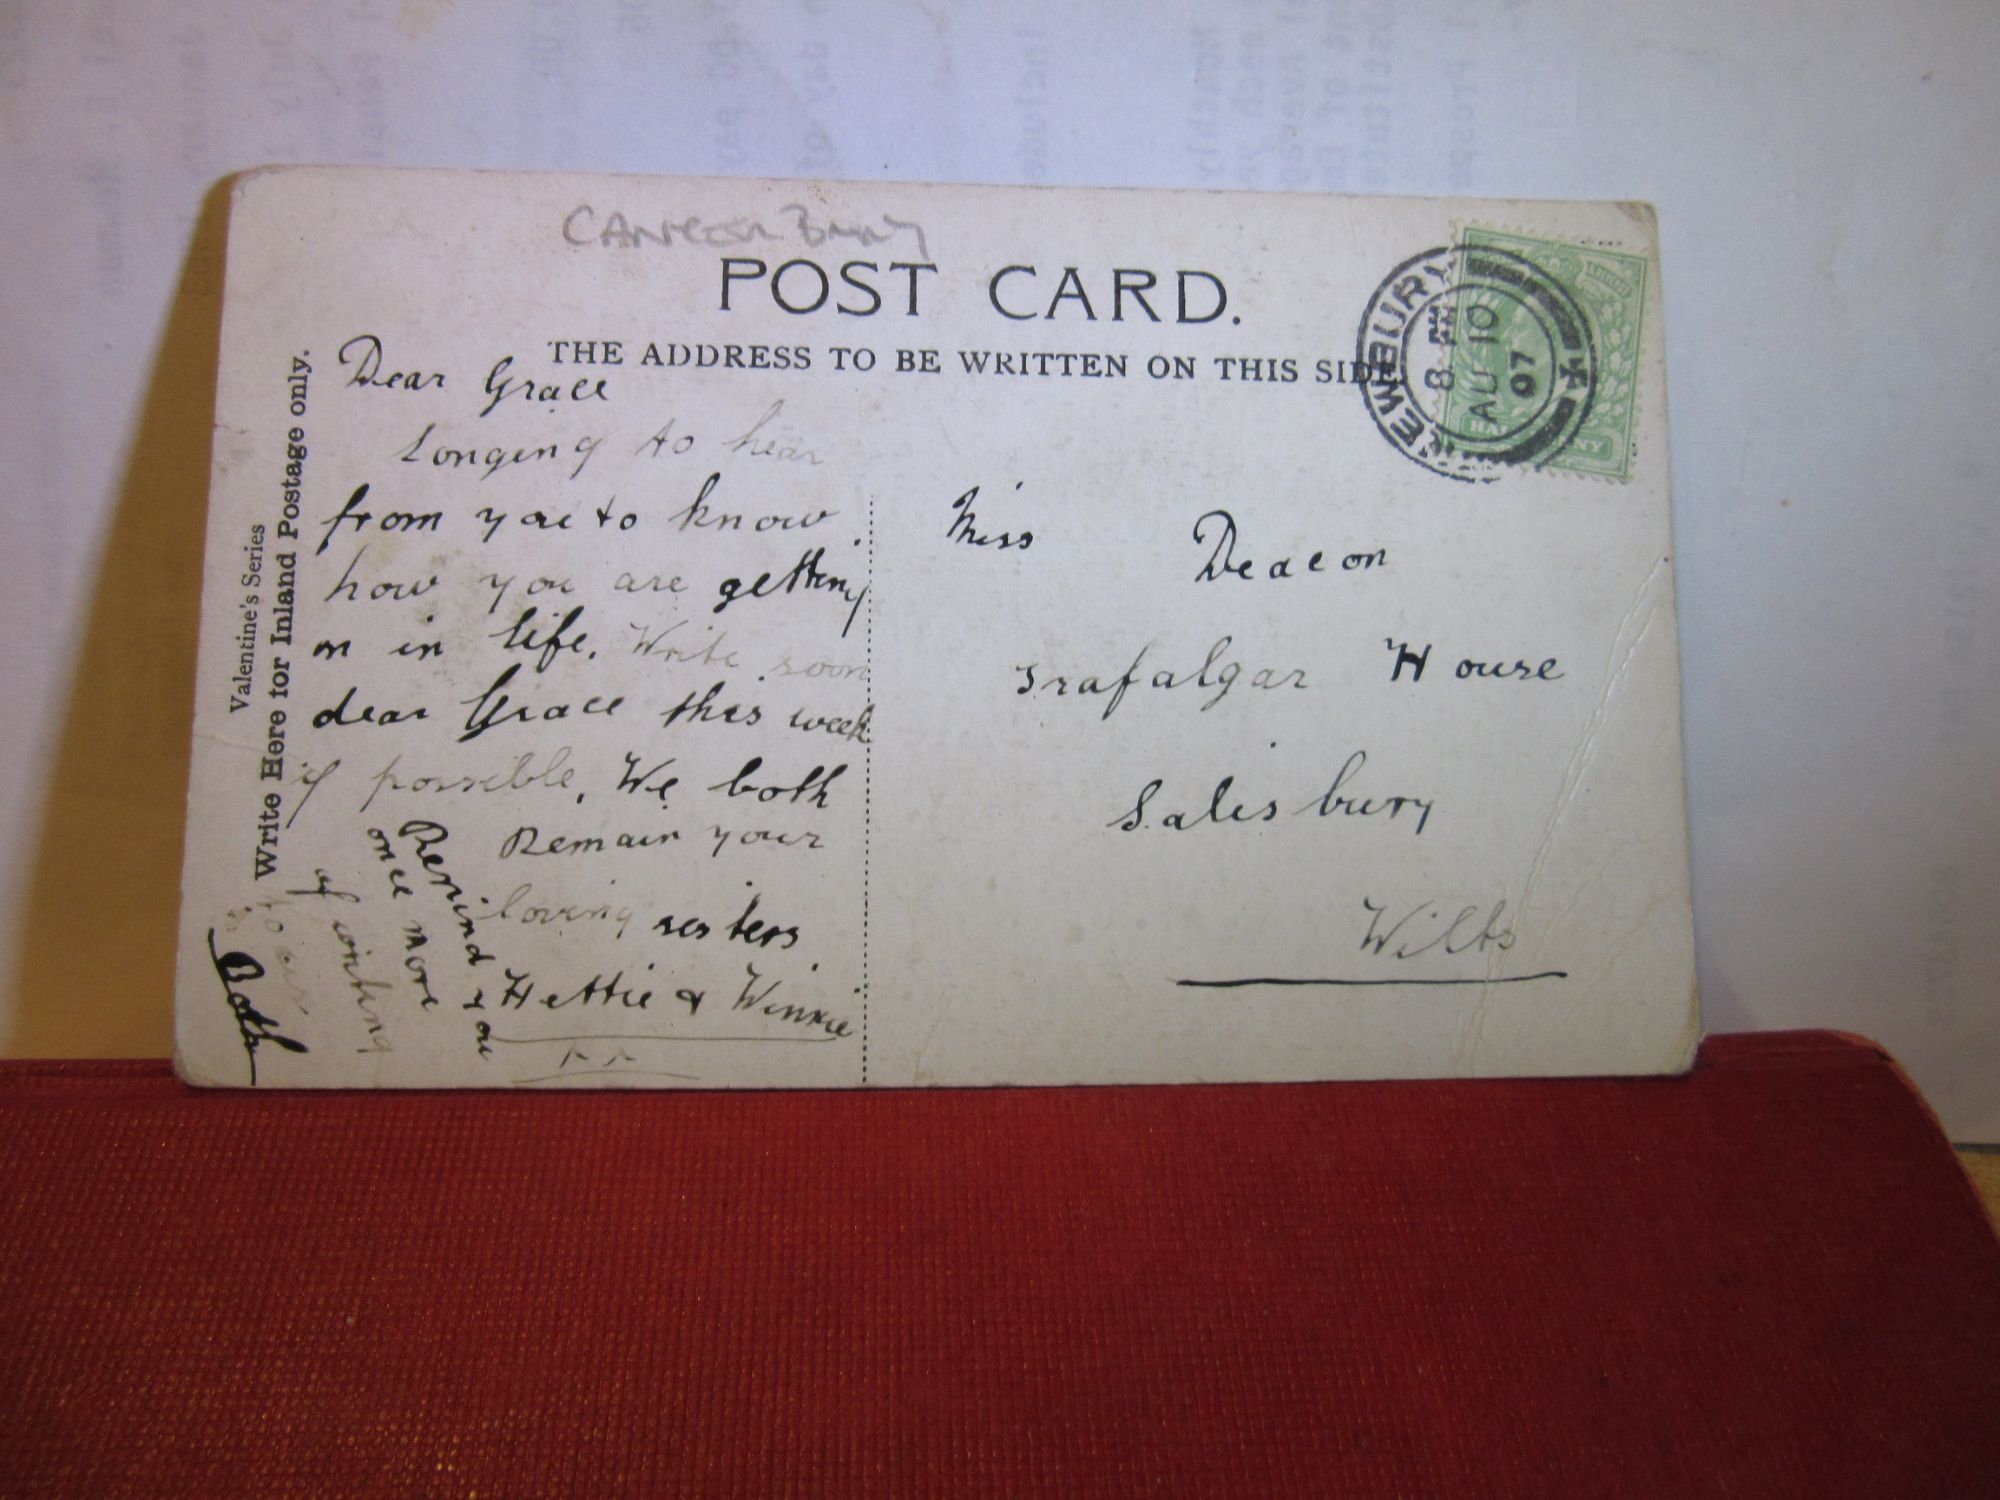 CANTERBURY
POST CARD.
THE ADDRESS TO BE WRITTEN ON THIS SIDE.
Valentine's Series
Write Here for Inland Postage only.
Dear Grace
Longing to hear
from you to know
how you are getting
on in life. Write soon
dear Grace this week
if possible. We both
Remain your
loving sisters
Hettie & Winnie
Remind you
once more
of writing
to us
Both
Miss Deacon
Trafalgar House
Salisbury
Wilts
EWSBURY
8 PM
AU 10
07
HALFPENNY